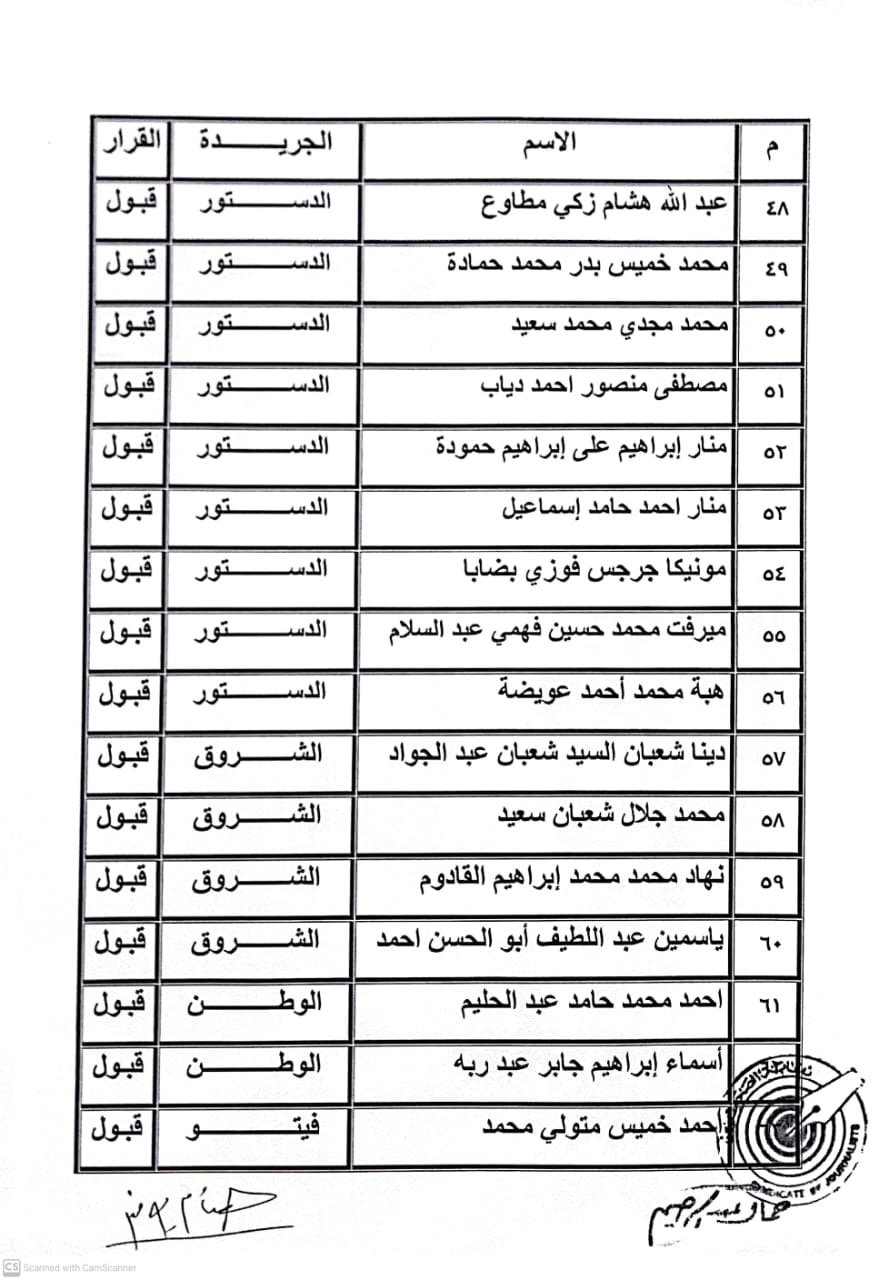 م الاسم الجريـــــدة القرار
٤٨ عبد الله هشام زكي مطاوع الدســـــتور قبول
٤٩ محمد خميس بدر محمد حمادة الدســـــتور قبول
٥٠ محمد مجدي محمد سعيد الدســـــتور قبول
٥١ مصطفى منصور احمد دياب الدســـــتور قبول
٥٢ منار إبراهيم على إبراهيم حمودة الدســـــتور قبول
٥٣ منار احمد حامد إسماعيل الدســـــتور قبول
٥٤ مونيكا جرجس فوزي بضابا الدســـــتور قبول
٥٥ ميرفت محمد حسين فهمي عبد السلام الدســـــتور قبول
٥٦ هبة محمد أحمد عويضة الدســـــتور قبول
٥٧ دينا شعبان السيد شعبان عبد الجواد الشـــــروق قبول
٥٨ محمد جلال شعبان سعيد الشـــــروق قبول
٥٩ نهاد محمد محمد إبراهيم القادوم الشـــــروق قبول
٦٠ ياسمين عبد اللطيف أبو الحسن احمد الشـــــروق قبول
٦١ احمد محمد حامد عبد الحليم الوطـــــن قبول
أسماء إبراهيم جابر عبد ربه الوطـــــن قبول
احمد خميس متولي محمد فيتـــــو قبول
SYNDICATE BY JOURNALISTS
CS Scanned with CamScanner